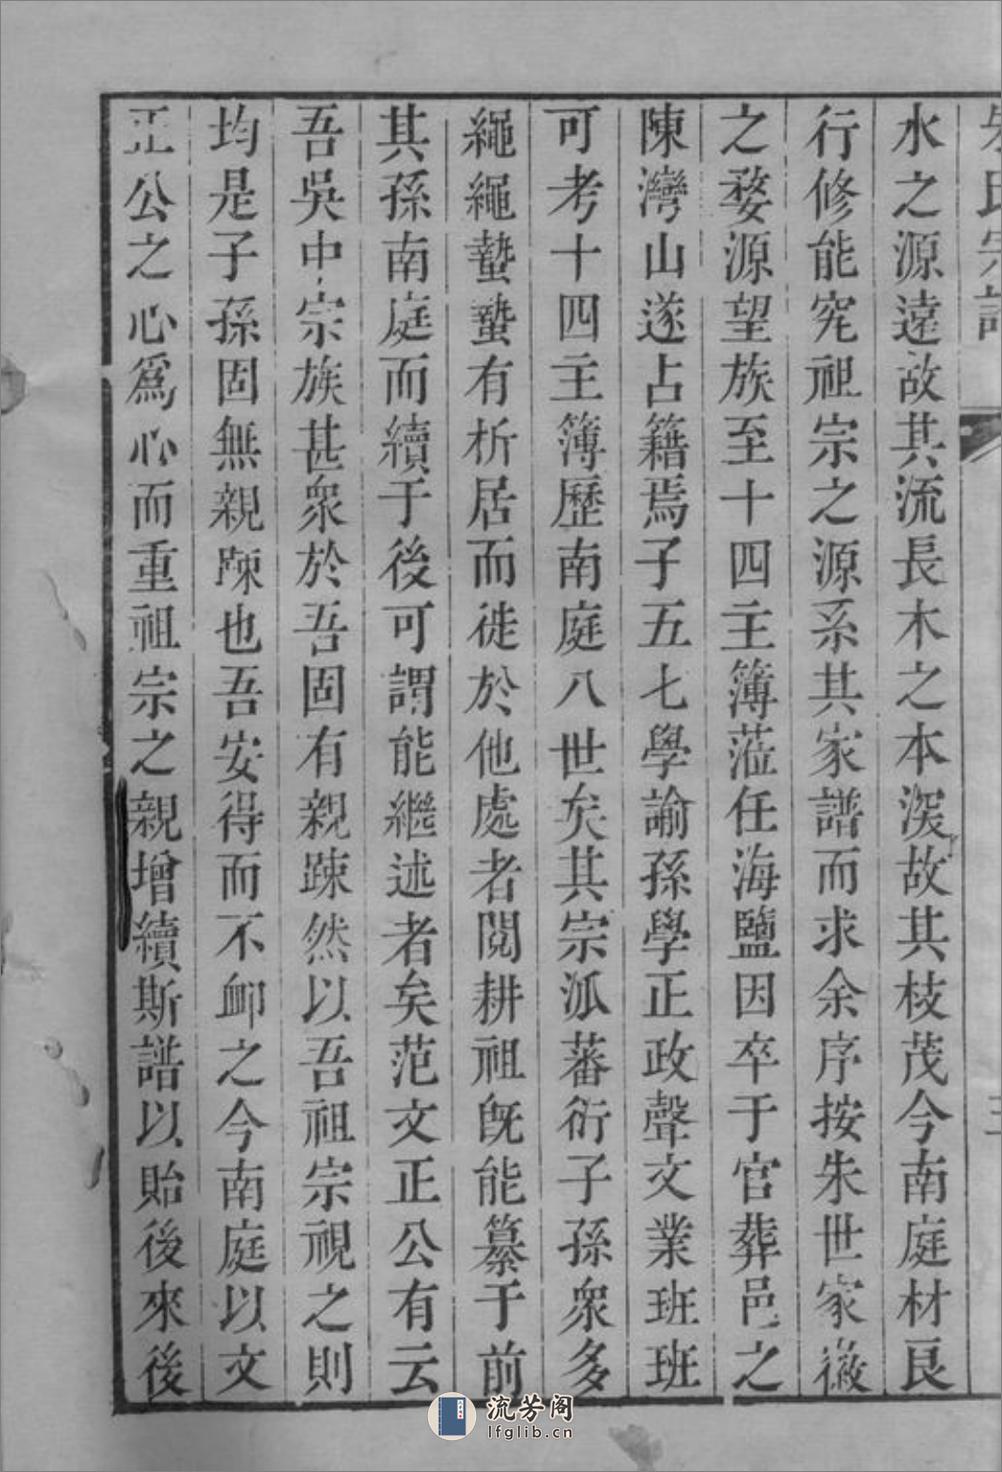 朱氏宗譜
三
水之源遠故其流長木之本深故其枝茂今南庭材良
行修能究祖宗之源系其家譜而求余序按朱世家徽
之婺源望族至十四主簿蒞任海鹽因卒于官葬邑之
陳灣山遂占籍焉子五七學諭孫學正政聲文業班班
可考十四主簿歷南庭八世矣其宗派蕃衍子孫衆多
繩繩蟄蟄有析居而徙於他處者閱耕祖旣能纂于前
其孫南庭而續于後可謂能繼述者矣范文正公有云
吾吳中宗族甚衆於吾固有親踈然以吾祖宗視之則
均是子孫固無親踈也吾安得而不衈之今南庭以文
正公之心爲心而重祖宗之親增續斯譜以貽後來後
流芳阁
lfglib.cn